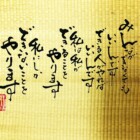 みんな
できる人がやれば
いいんです
私は私が
できることを
やります
私にしか
できないことを
やります